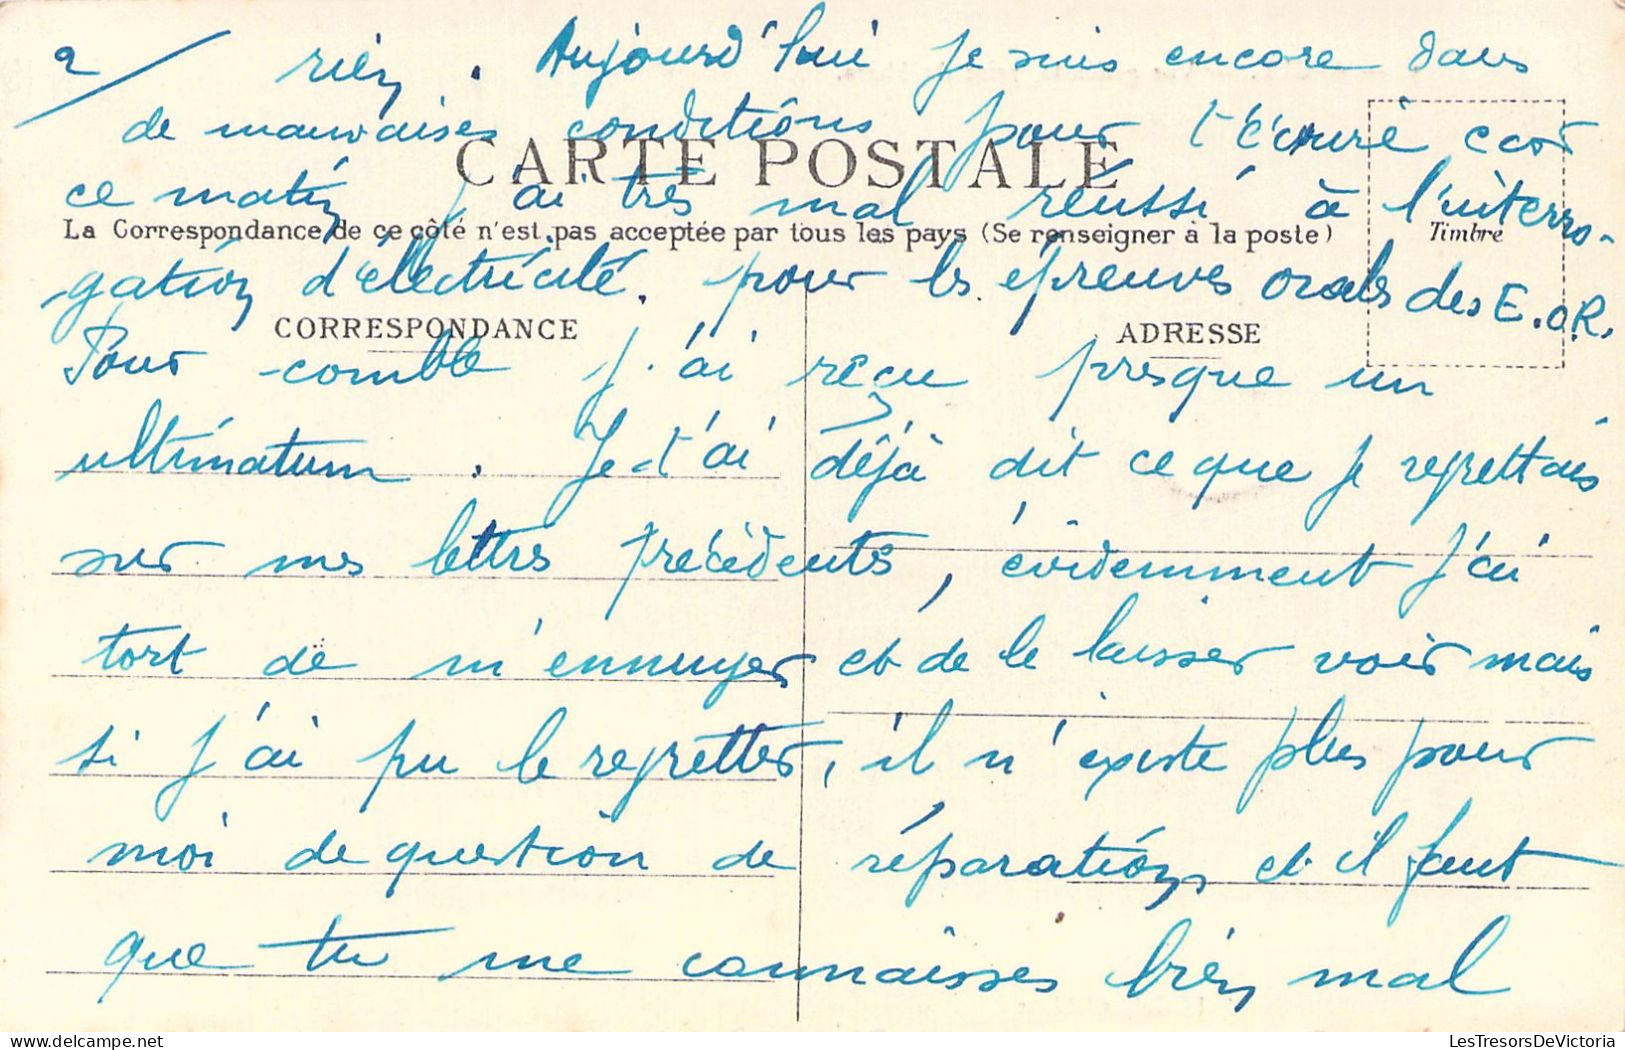 2/ rien. Aujourd'hui je suis encore dans
de mauvaises conditions pour t'écrire car
CARTE POSTALE
ce matin j'ai très mal réussi à l'interro-
La Correspondance de ce côté n'est pas acceptée par tous les pays (Se renseigner à la poste)
Timbre
gation d'électricité. pour les épreuves orales des E.O.R.
CORRESPONDANCE
ADRESSE
Pour comble j'ai reçu presque un
ultimatum. Je t'ai déjà dit ce que je regrettais
sur mes lettres précédents, évidemment j'ai
tort de m'ennuyer et de le laisser voir mais
si j'ai pu le regretter, il n'existe plus pour
moi de question de réparation et il faut
que tu me connaisses bien mal
LesTresorsDeVictoria
delcampe.net